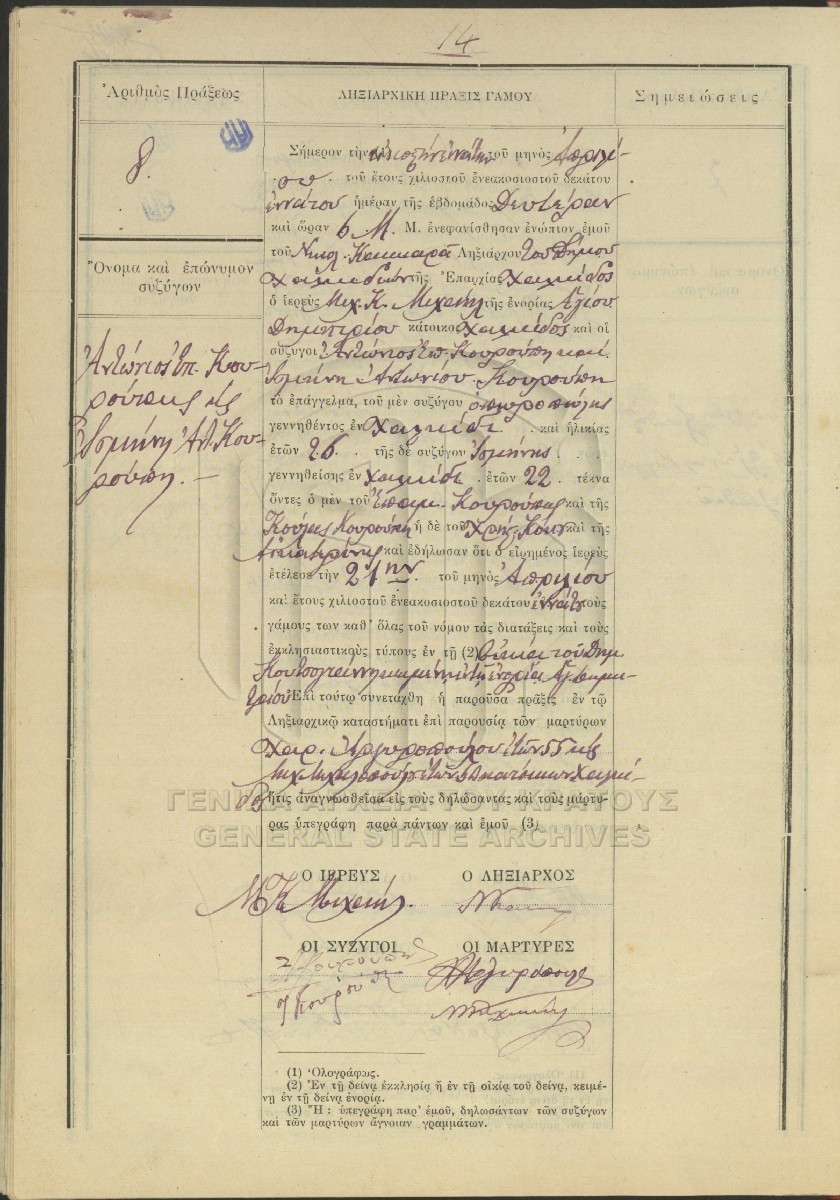 14
Ἀριθμὸς Πράξεως
8.
Ὄνομα καὶ ἐπώνυμον
συζύγων
Ἀντώνιος Ἐπ. Κου-
ρούπης κ
Ἰσμήνη Ἀντ. Κου-
ρούπη. —
ΛΗΞΙΑΡΧΙΚΗ ΠΡΑΞΙΣ ΓΑΜΟΥ
Σήμερον τὴν εἰκοστὴν ἐνάτην τοῦ μηνὸς Ἀπριλί-
ου τοῦ ἔτους χιλιοστοῦ ἐνεακοσιοστοῦ δεκάτου
ἐννάτου ἡμέραν τῆς ἑβδομάδος Δευτέραν
καὶ ὥραν 6 Μ. Μ. ἐνεφανίσθησαν ἐνώπιον ἐμοῦ
τοῦ Νικολ. Κακκαρᾶ Ληξιάρχου τοῦ Δήμου
Χαλκιδέων τῆς Ἐπαρχίας Χαλκίδος
ὁ ἱερεὺς Μιχ. Κ. Μιχαὴλ τῆς ἐνορίας Ἁγίου
Δημητρίου κάτοικος Χαλκίδος καὶ οἱ
σύζυγοι Ἀντώνιος Ἐπ. Κουρούπης καὶ
Ἰσμήνη Ἀντωνίου Κουρούπη
τὸ ἐπάγγελμα, τοῦ μὲν συζύγου ὀπωροπώλης
γεννηθέντος ἐν Χαλκίδι καὶ ἡλικίας
ἐτῶν 26 τῆς δὲ συζύγου Ἰσμήνης
γεννηθείσης ἐν Χαλκίδι ἐτῶν 22 τέκνα
ὄντες ὁ μὲν τοῦ Ἐπαμ. Κουρούπης καὶ τῆς
Κούλας Κουρούπη ἡ δὲ τοῦ Χρήσ. καὶ τῆς
Αἰκατερίνης καὶ ἐδήλωσαν ὅτι ὁ εἰρημένος ἱερεὺς
ἐτέλεσε τὴν 21ην τοῦ μηνὸς Ἀπριλίου
καὶ ἔτους χιλιοστοῦ ἐνεακοσιοστοῦ δεκάτου ἐννάτου τοὺς
γάμους των καθ' ὅλας τοῦ νόμου τὰς διατάξεις καὶ τοὺς
ἐκκλησιαστικοὺς τύπους ἐν τῇ (2) οἰκίᾳ τοῦ Δημ
Κουτσογιάννη κειμένῃ ἐν τῇ ἐνορίᾳ Ἁγ. Δημη-
τρίου Ἐπὶ τούτῳ συνετάχθη ἡ παροῦσα πρᾶξις ἐν τῷ
Ληξιαρχικῷ καταστήματι ἐπὶ παρουσίᾳ τῶν μαρτύρων
Χαρ. Ἀργυροπούλου ἐτῶν 55 κ
ἐτῶν κατοίκων Χαλκί-
δος ἥτις ἀναγνωσθεῖσα εἰς τοὺς δηλώσαντας καὶ τοὺς μάρτυ-
ρας ὑπεγράφη παρὰ πάντων καὶ ἐμοῦ (3)
ΓΕΝΙΚΑ ΑΡΧΕΙΑ ΤΟΥ ΚΡΑΤΟΥΣ
GENERAL STATE ARCHIVES
Ο ΙΕΡΕΥΣ Ο ΛΗΞΙΑΡΧΟΣ
Μ Κ Μιχαήλ
ΟΙ ΣΥΖΥΓΟΙ ΟΙ ΜΑΡΤΥΡΕΣ
Κουρούπη
(1) Ὁλογράφως.
(2) Ἐν τῇ δεῖνα ἐκκλησίᾳ ἢ ἐν τῇ οἰκίᾳ τοῦ δεῖνα, κειμέ-
νῃ ἐν τῇ δεῖνα ἐνορίᾳ.
(3) Ἢ : ὑπεγράφη παρ' ἐμοῦ, δηλωσάντων τῶν συζύγων
καὶ τῶν μαρτύρων ἄγνοιαν γραμμάτων.
Σημειώσεις